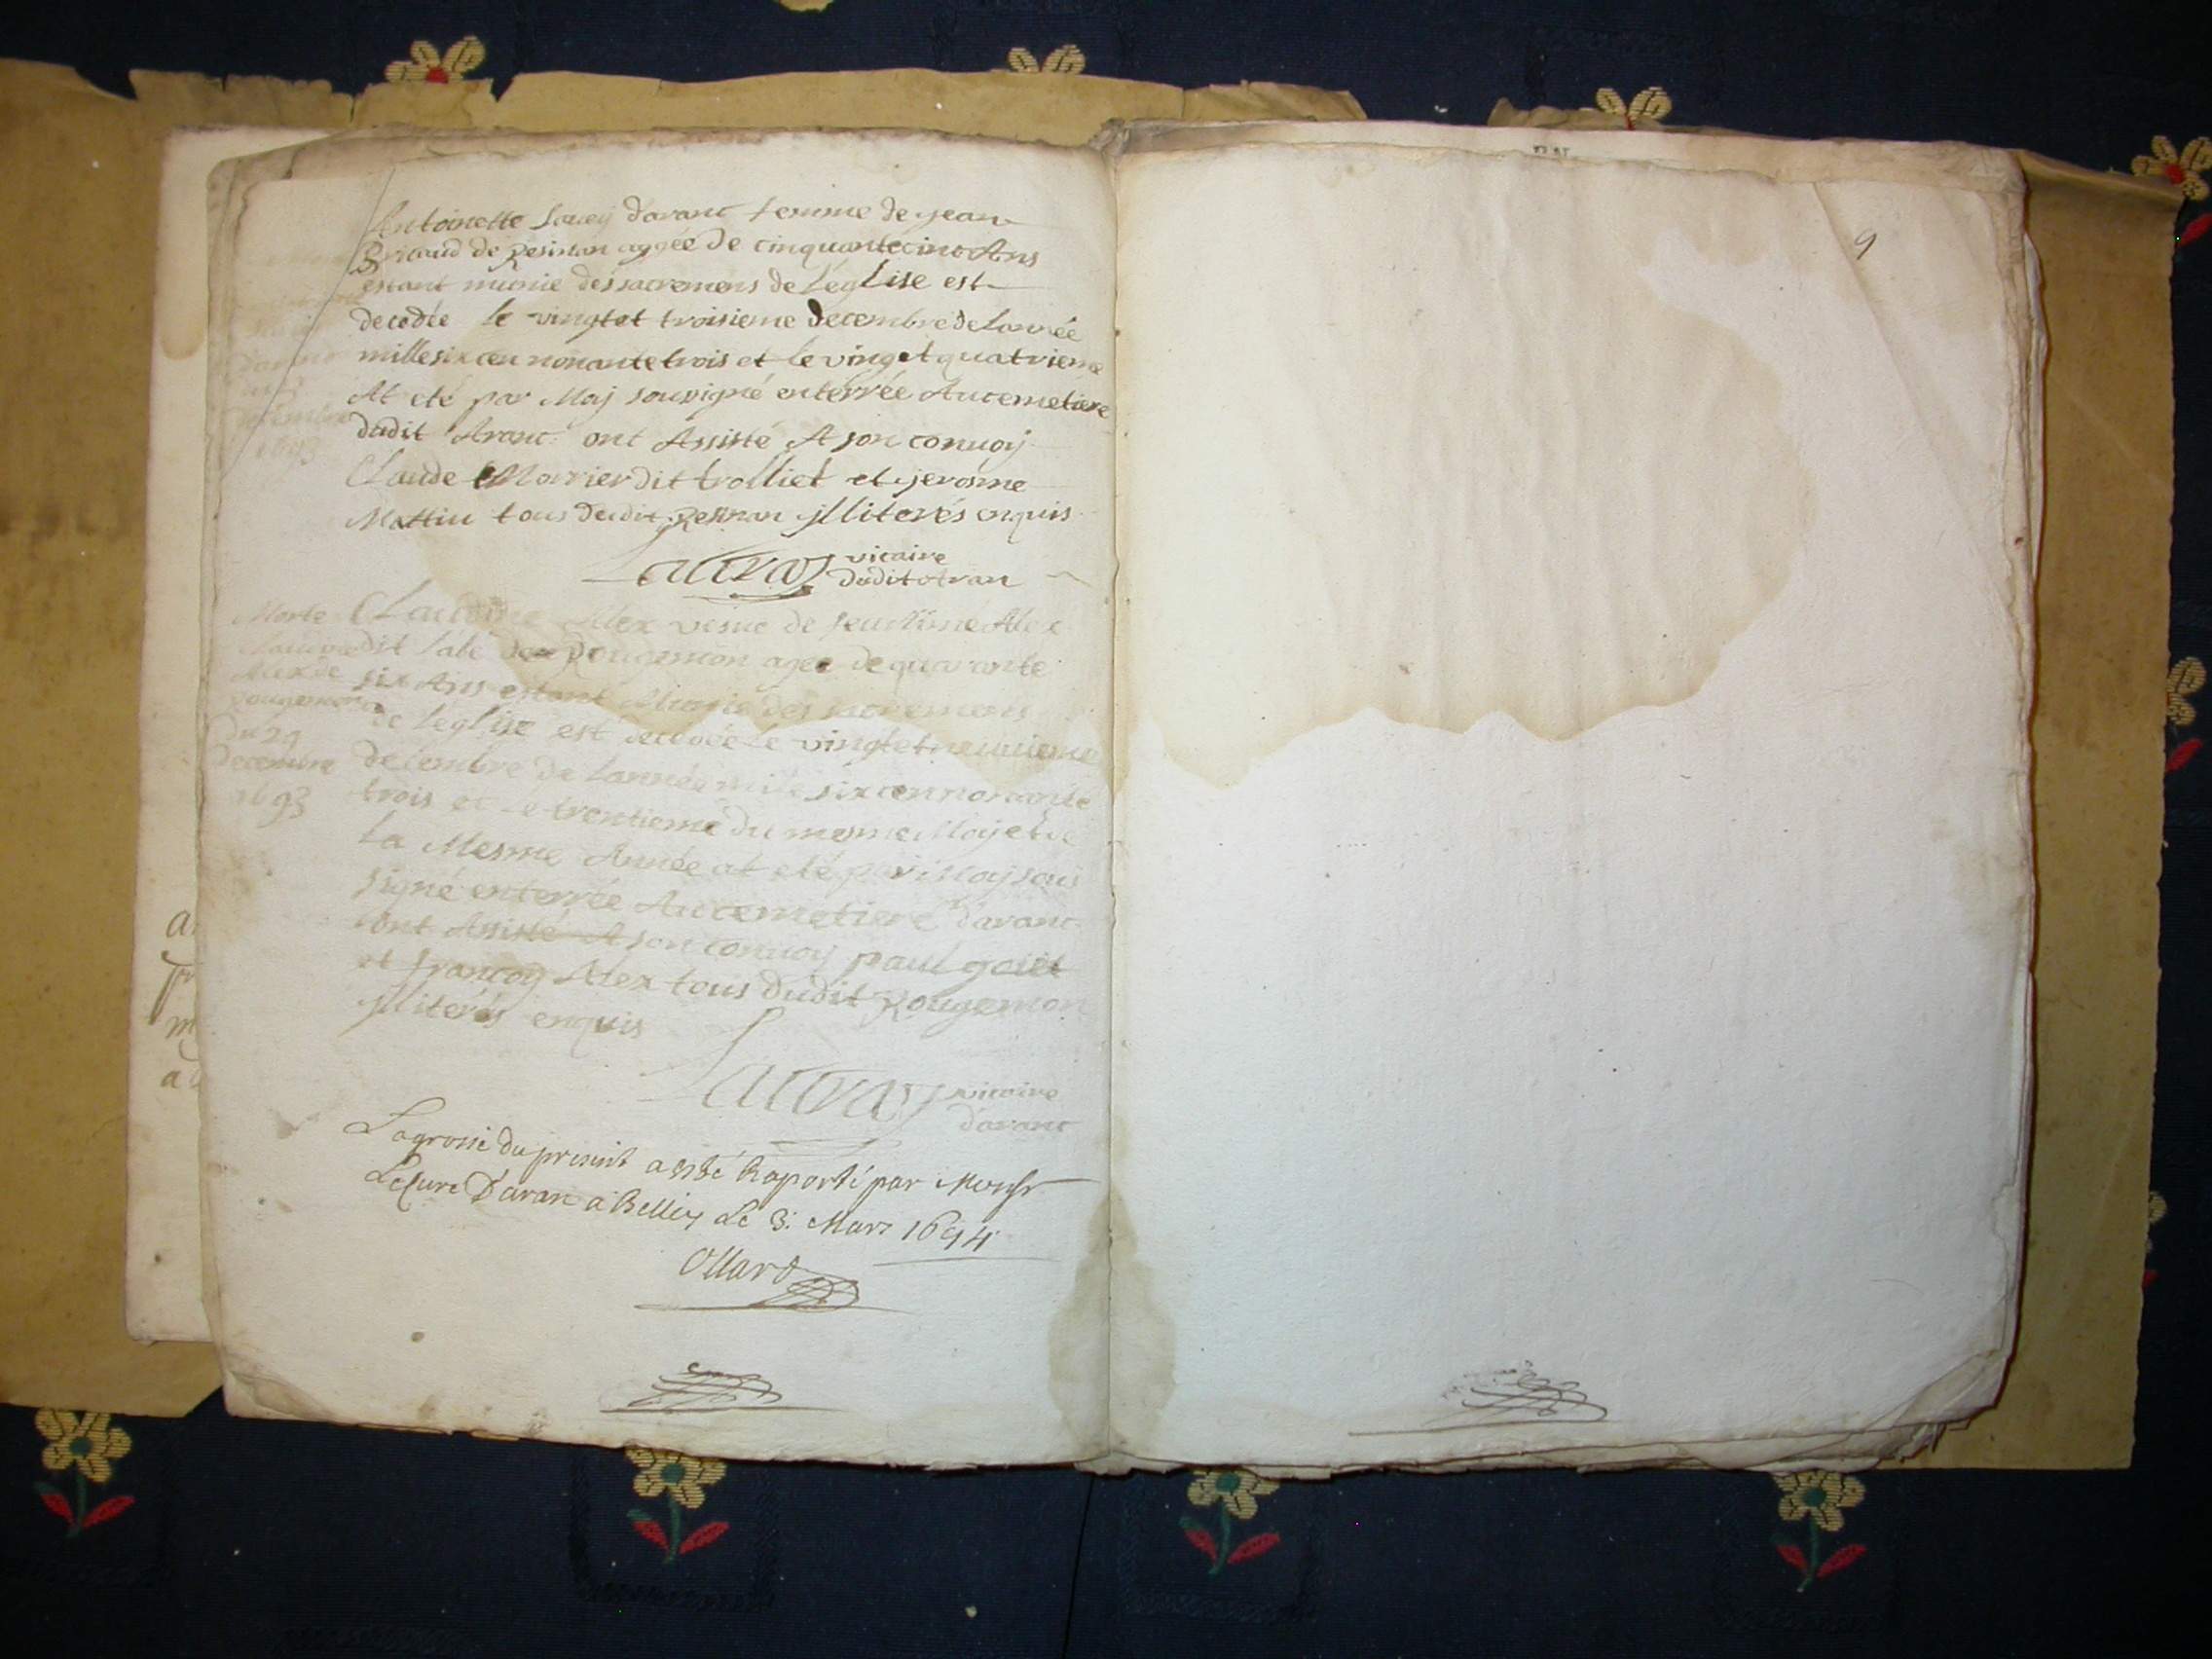 Antoinette Savey d'aranc femme de jean
Bricaud de Resinan aggée de cinquantecinc Ans
estant munie des sacremens de L'égLise est
decedée le vingtet troisieme decembre de Lannée
millesixcen nonantetrois et le vinget quatrieme
At eté par Moy sousigné enterrée Aucemetiere
dudit Aranc ont Assisté A son conuoy
Claude Marrier dit trolliet et jerosme
Mattin tous dudit Resinan jlliterés enquis
vicaire
dudit Aran
decembre
1693
Morte
Alex vesue de feu Aimé Alex
dit l'abé de Rougemon agee de quarante
six Ans estant Munie des sacremens
de l'eglise est decedée le vingtetneuuieme
decembre de Lannée mile sixcennonante
trois et le trentieme du mesme Moyet de
La Mesme Année at eté par Moy sous
signé enterrée Aucemetiere d'aranc
ont Assisté A son conuoy paul goiet
et françoy Alex tous dudit Rougemon
jlliterés enquis
Alex de
rougemon
du 29
decembre
1693
vicaire
d'aranc
La grosse du present a esté Raporté par Monsr
Le Curé D'aran a Belley Le 3. Mars 1694
Ollard
9